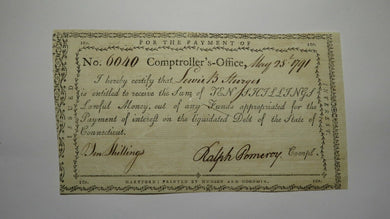 10s. FOR THE PAYMENT OF 10s.
No. 6040 Comptroller's-Office, May 25th 1791
I hereby certify that Lewis B. Sturges
is entitled to receive the Sum of TEN SHILLINGS
Lawful Money, out of any Funds appropriated for the
Payment of interest on the liquidated Debt of the State of
Connecticut.
Ten Shillings Ralph Pomeroy Compt.
10s. HARTFORD: PRINTED BY HUDSON AND GOODWIN. 10s.